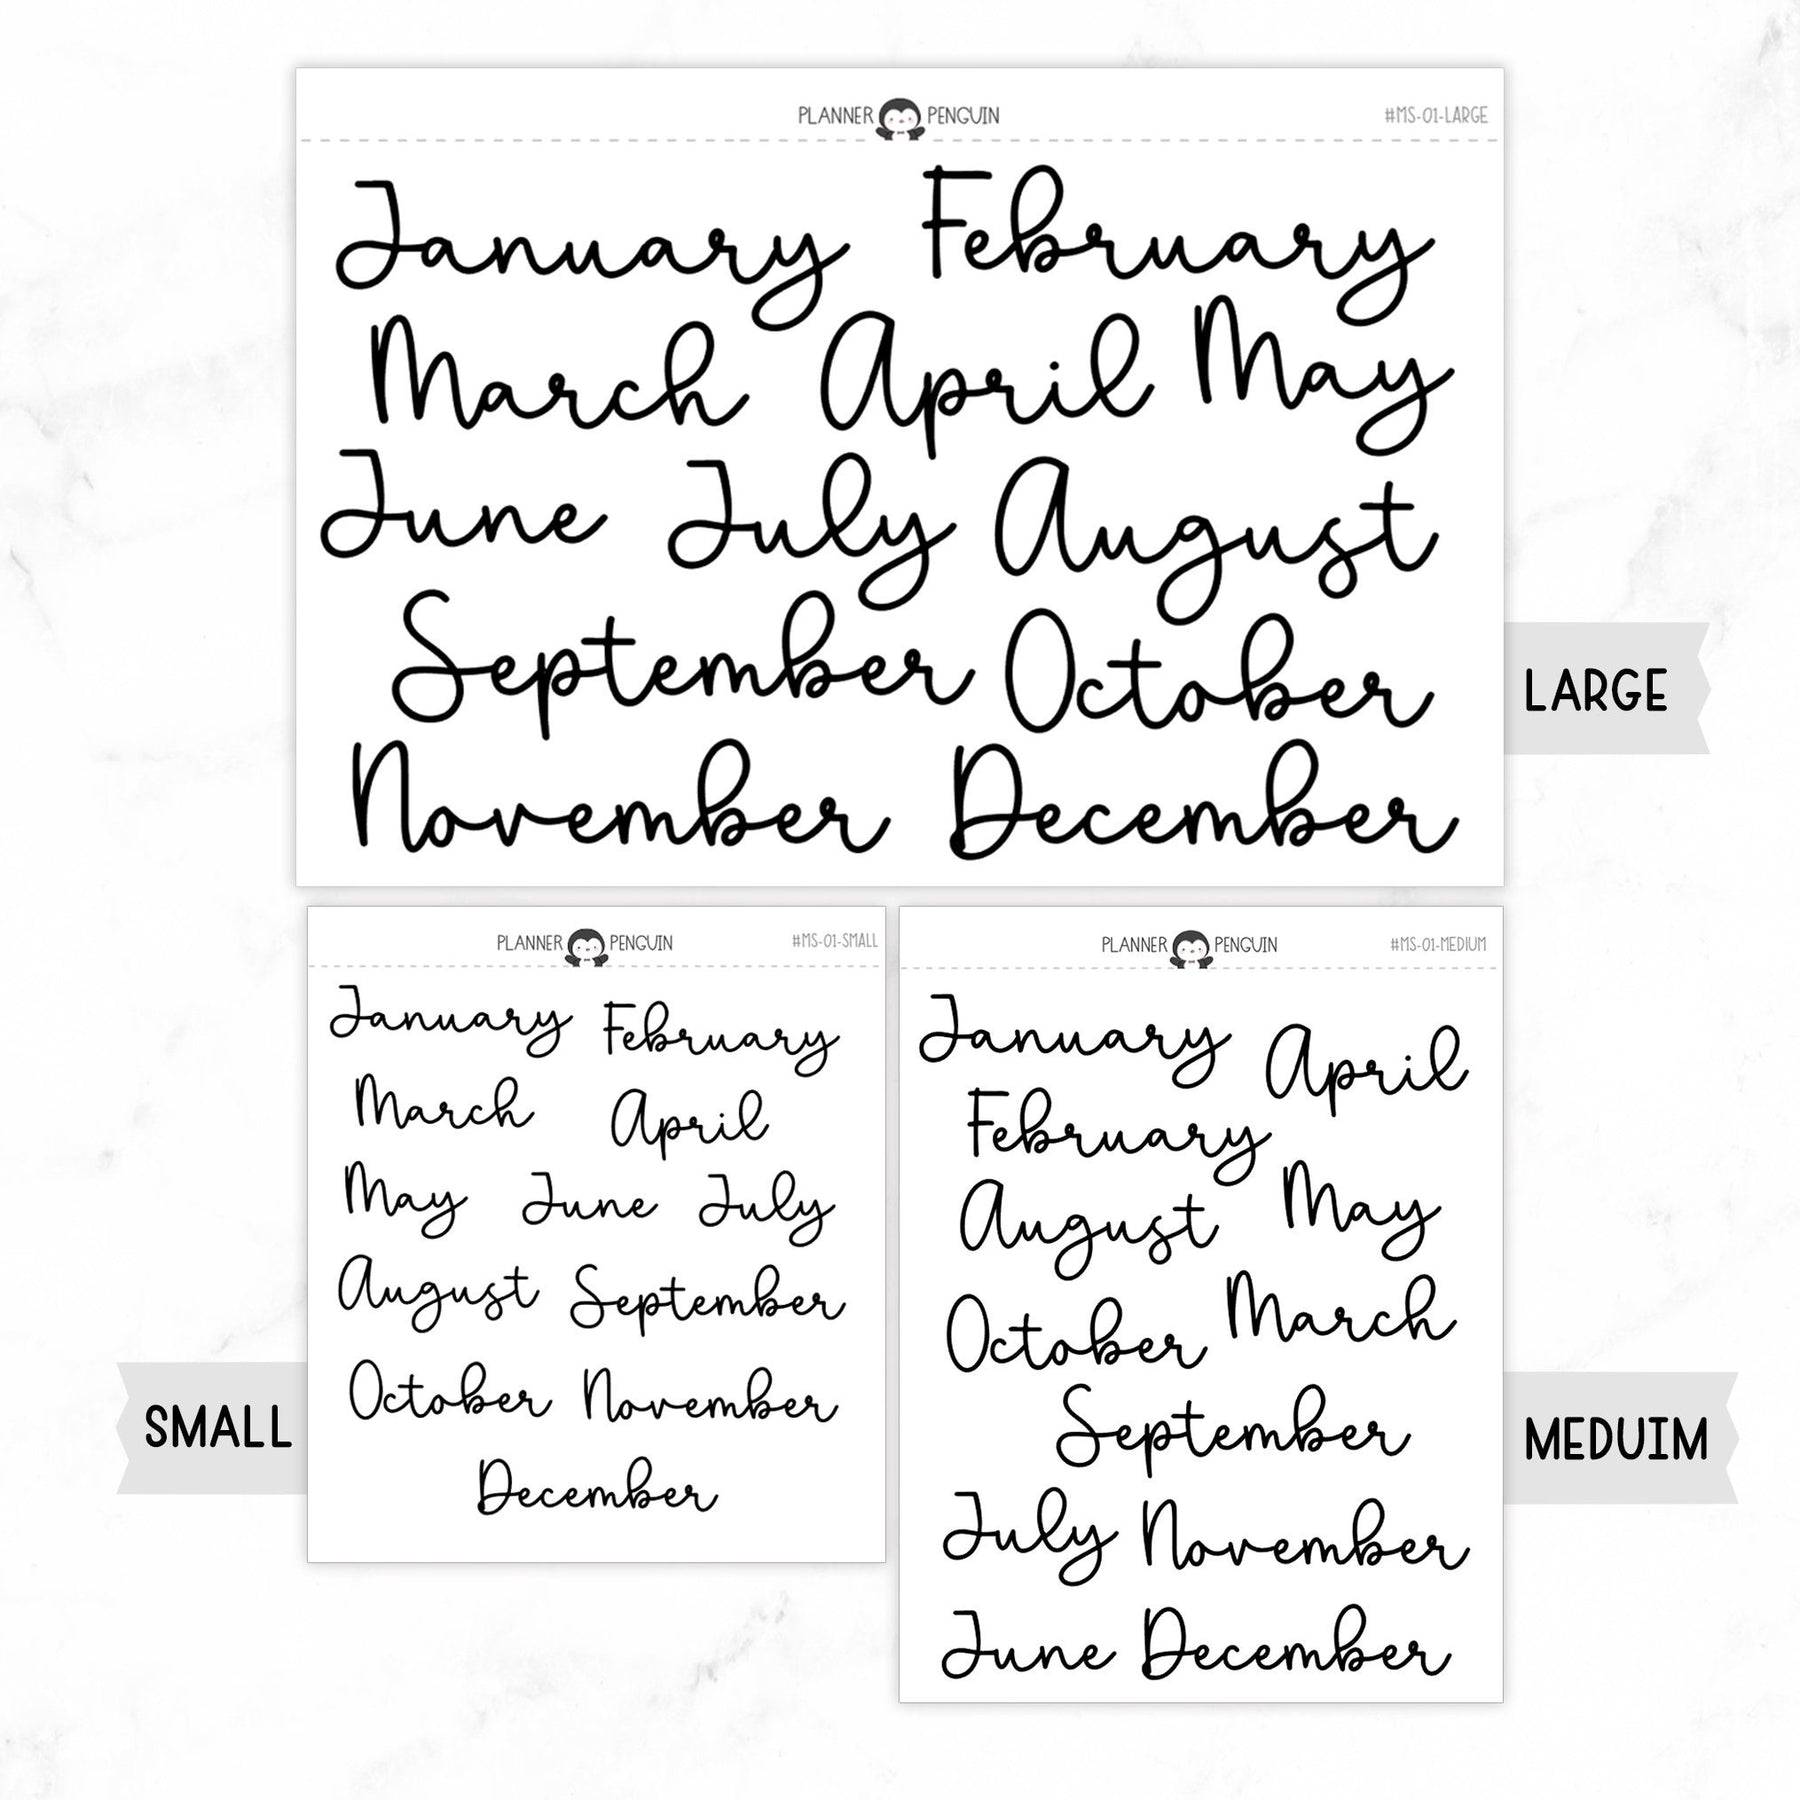 PLANNER PENGUIN #MS-01-LARGE
January February
March April May
June July August
September October
November December
LARGE
PLANNER PENGUIN #MS-01-SMALL
January February
March April
May June July
August September
October November
December
SMALL
PLANNER PENGUIN #MS-01-MEDIUM
January April
February
August May
October March
September
July November
June December
MEDUIM